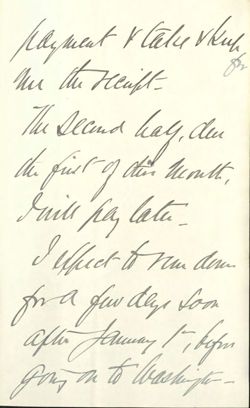 payment & take & keep
for
me the receipt -
The second half, due
the first of this month,
I will pay later -
I expect to run down
for a few days soon
after January 1st, before
going on to Washington -